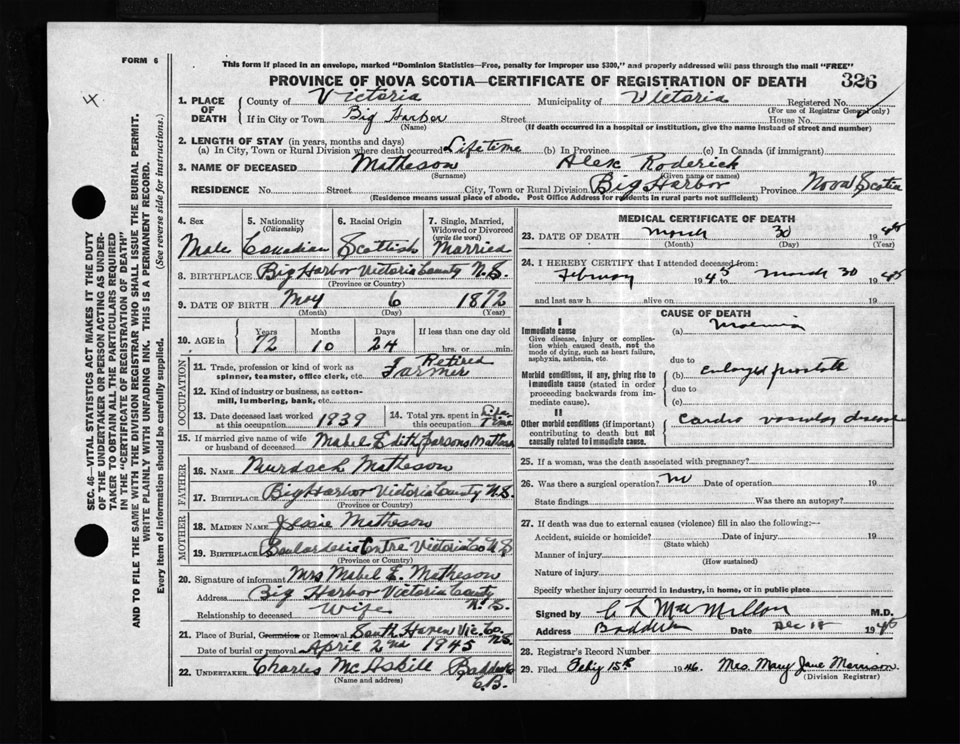 FORM 6
This form if placed in an envelope, marked "Dominion Statistics—Free, penalty for improper use $300," and properly addressed will pass through the mail "FREE"
PROVINCE OF NOVA SCOTIA—CERTIFICATE OF REGISTRATION OF DEATH 326
SEC. 46—VITAL STATISTICS ACT MAKES IT THE DUTY
OF THE UNDERTAKER OR PERSON ACTING AS UNDER-
TAKER TO OBTAIN ALL THE PARTICULARS REQUIRED
IN THE "CERTIFICATE OF REGISTRATION OF DEATH"
AND TO FILE THE SAME WITH THE DIVISION REGISTRAR WHO SHALL ISSUE THE BURIAL PERMIT.
WRITE PLAINLY WITH UNFADING INK. THIS IS A PERMANENT RECORD.
Every item of information should be carefully supplied. (See reverse side for instructions.)
1. PLACE OF DEATH County of Victoria Municipality of Victoria Registered No.
(For use of Registrar General only)
If in City or Town Big Harbor Street House No.
(Name) (If death occurred in a hospital or institution, give the name instead of street and number)
2. LENGTH OF STAY (in years, months and days)
(a) In City, Town or Rural Division where death occurred Lifetime (b) In Province (c) In Canada (if immigrant)
3. NAME OF DECEASED Matheson Alex Roderick
(Surname) (Given name or names)
RESIDENCE No. Street City, Town or Rural Division Big Harbor Province Nova Scotia
(Residence means usual place of abode. Post Office Address for residents in rural parts not sufficient)
4. Sex Male
5. Nationality (Citizenship) Canadian
6. Racial Origin Scottish
7. Single, Married, Widowed or Divorced (write the word) Married
8. BIRTHPLACE Big Harbor Victoria County N.S.
(Province or Country)
9. DATE OF BIRTH May 6 1872
(Month) (Day) (Year)
10. AGE in Years 72 Months 10 Days 24 If less than one day old hrs. or min.
OCCUPATION
11. Trade, profession or kind of work as spinner, teamster, office clerk, etc. Retired Farmer
12. Kind of industry or business, as cotton-mill, lumbering, bank, etc.
13. Date deceased last worked at this occupation 1939
14. Total yrs. spent in this occupation Life Time
15. If married give name of wife or husband of deceased Mabel Edith Parsons Matheson
FATHER
16. NAME Murdoch Matheson
17. BIRTHPLACE Big Harbor Victoria County N.S.
(Province or Country)
MOTHER
18. MAIDEN NAME Jessie Matheson
19. BIRTHPLACE Boulardarie Centre Victoria Co N.S
(Province or Country)
20. Signature of informant Mrs Mabel E. Matheson
Address Big Harbor Victoria County N.S.
Relationship to deceased Wife
21. Place of Burial, Cremation or Removal South Haven Vic. Co. N.S.
Date of burial or removal April 2nd 1945
22. UNDERTAKER Charles McAskill Baddeck C.B.
(Name and address)
MEDICAL CERTIFICATE OF DEATH
23. DATE OF DEATH March 30 1945
(Month) (Day) (Year)
24. I HEREBY CERTIFY that I attended deceased from:
February 1945 to March 30 1945
and last saw h alive on 19
CAUSE OF DEATH
I
Immediate cause (a)
Give disease, injury or complica-
tion which caused death, not the
mode of dying, such as heart failure,
asphyxia, asthenia, etc.
due to
Morbid conditions, if any, giving rise to
immediate cause (stated in order
proceeding backwards from im-
mediate cause).
(b) enlarged prostate
due to
(c)
II
Other morbid conditions (if important)
contributing to death but not
causally related to immediate cause.
Cardio vascular disease
25. If a woman, was the death associated with pregnancy?
26. Was there a surgical operation? no Date of operation 19
State findings Was there an autopsy?
27. If death was due to external causes (violence) fill in also the following:—
Accident, suicide or homicide? Date of injury 19
(State which)
Manner of injury
(How sustained)
Nature of injury
Specify whether injury occurred in industry, in home, or in public place
Signed by C L MacMillan M.D.
Address Baddeck Date Dec 18 1945
28. Registrar's Record Number
29. Filed Feby 15th 1946. Mrs. Mary Jane Morrison
(Division Registrar)